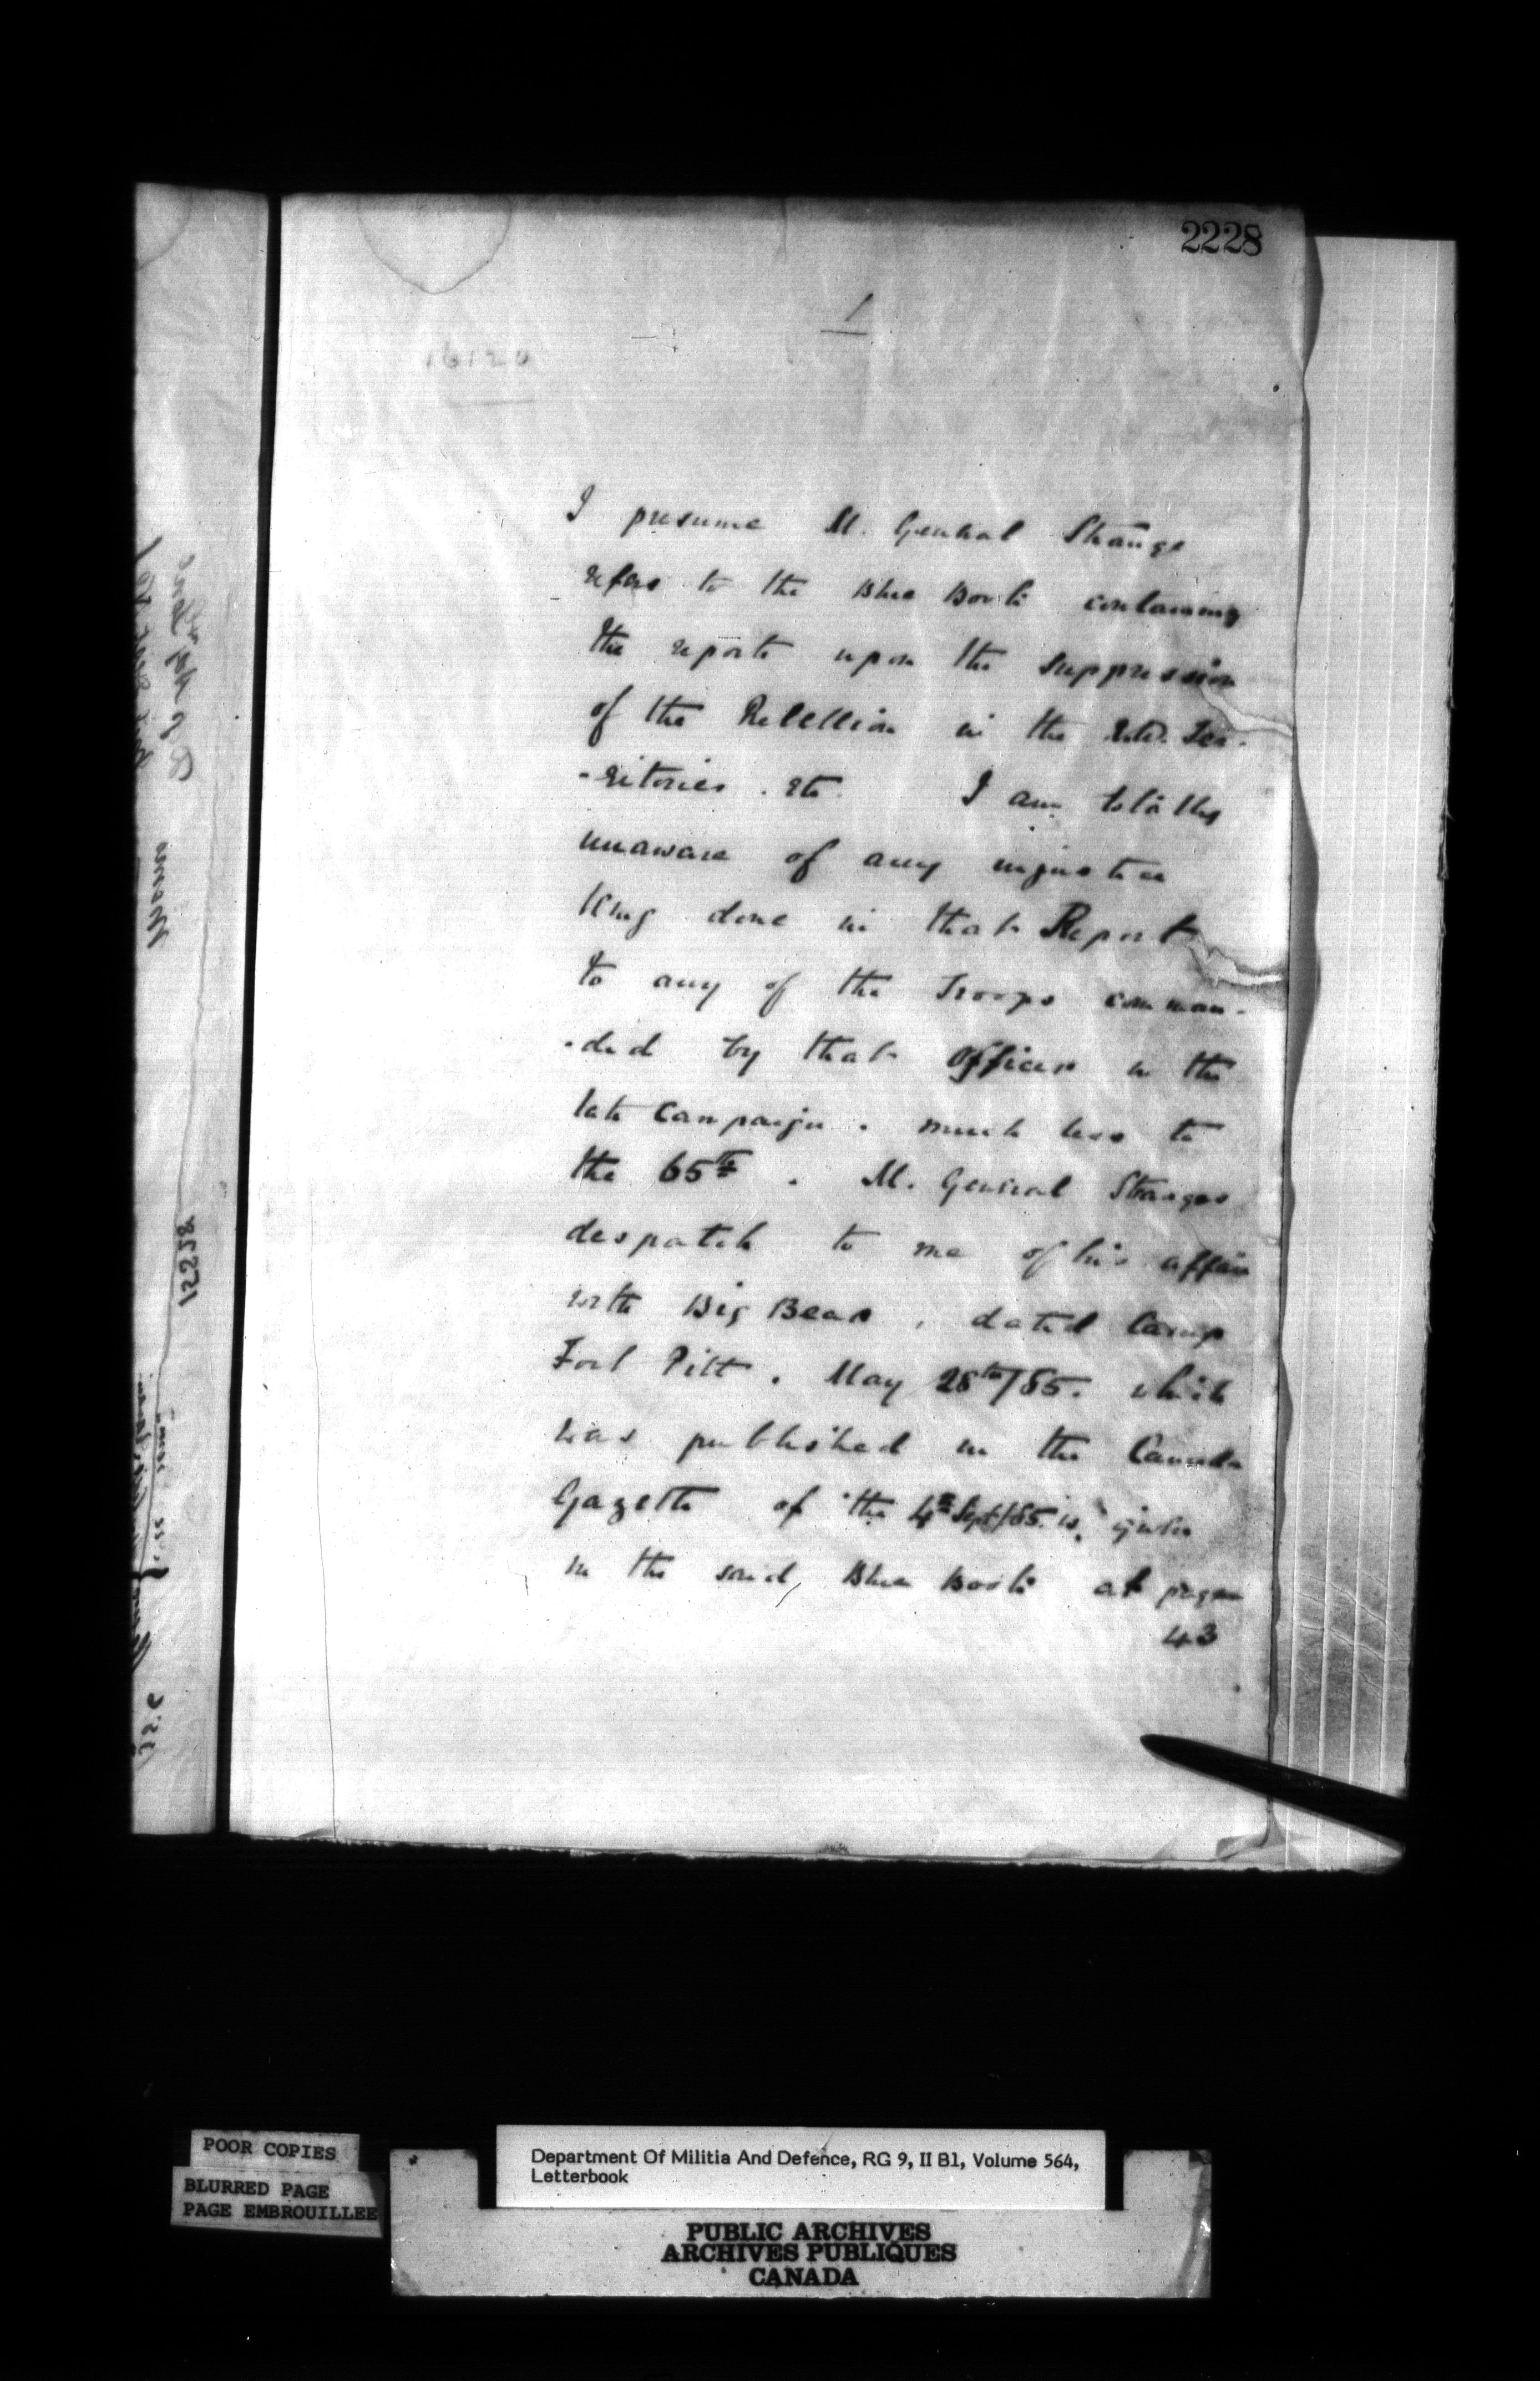 2228
1
16120
I presume M. General Strange
refers to the Blue Book containing
the reports upon the suppression
of the Rebellion in the N.W. Ter-
-ritories. etc. I am totally
unaware of any injustice
being done in that Report
to any of the Troops comman-
-ded by that Officer in the
late Campaign. much less to
the 65th. M. General Stranges
despatch to me of his affair
with Big Bear, dated Camp
Fort Pitt. May 28th/85. which
was published in the Canada
Gazette of the 4th Sept/85. is given
in the said Blue Book at page
43
Memo
POOR COPIES
BLURRED PAGE
PAGE EMBROUILLEE
Department Of Militia And Defence, RG 9, II B1, Volume 564,
Letterbook
PUBLIC ARCHIVES
ARCHIVES PUBLIQUES
CANADA